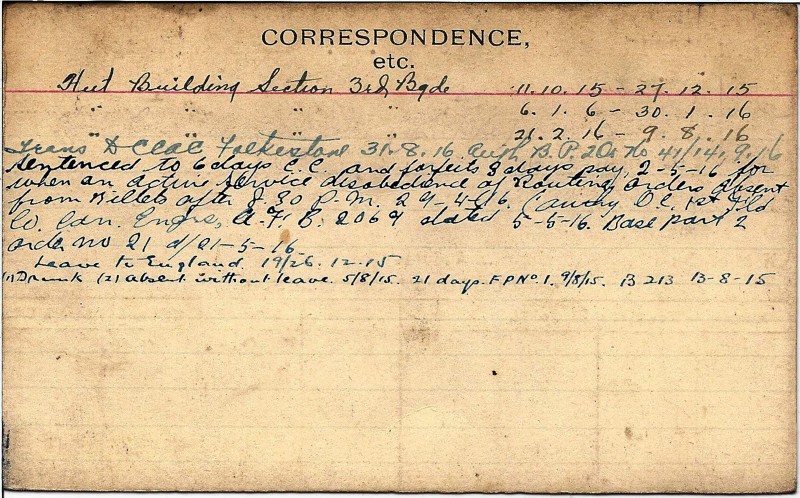 CORRESPONDENCE,
etc.
Hut Building Section 3rd Bgde 11.10.15 – 27.12.15
" " " " 6.1.6 – 30.1.16
" " " " 21.2.16 – 9.8.16
Trans D CCAC Folkestone 31.8.16 Auth B.P. 2 Or No 41/14.9.16
Sentenced to 6 days C.C. and forfeits 8 days pay, 2-5-16 for
when on active service disobedience of Routine orders absent
from Billets after 8.30 P.M. 29-4-16. (Authy O.C. 1st Fld
Co. Can. Engrs, A.F.B. 2069 dated 5-5-16. Base part 2
order no 21 d/21-5-16
Leave to England. 19/26.12.15
(1) Drunk (2) absent without leave. 5/8/15. 21 days. F P No. 1. 9/8/15. B 213 13-8-15